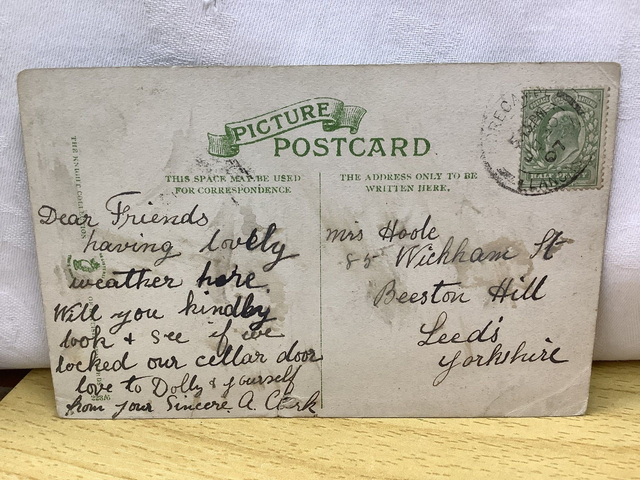 PICTURE
POSTCARD
THIS SPACE MAY BE USED
FOR CORRESPONDENCE
THE ADDRESS ONLY TO BE
WRITTEN HERE.
HALF PENNY
07
THE KNIGHT COLLECTION
Dear Friends
having lovely
weather here
Will you kindly
look & see if we
locked our cellar door
love to Dolly & yourself
from your Sincere A. Clark
Mrs Hoole
85 Wickham St
Beeston Hill
Leeds
Yorkshire